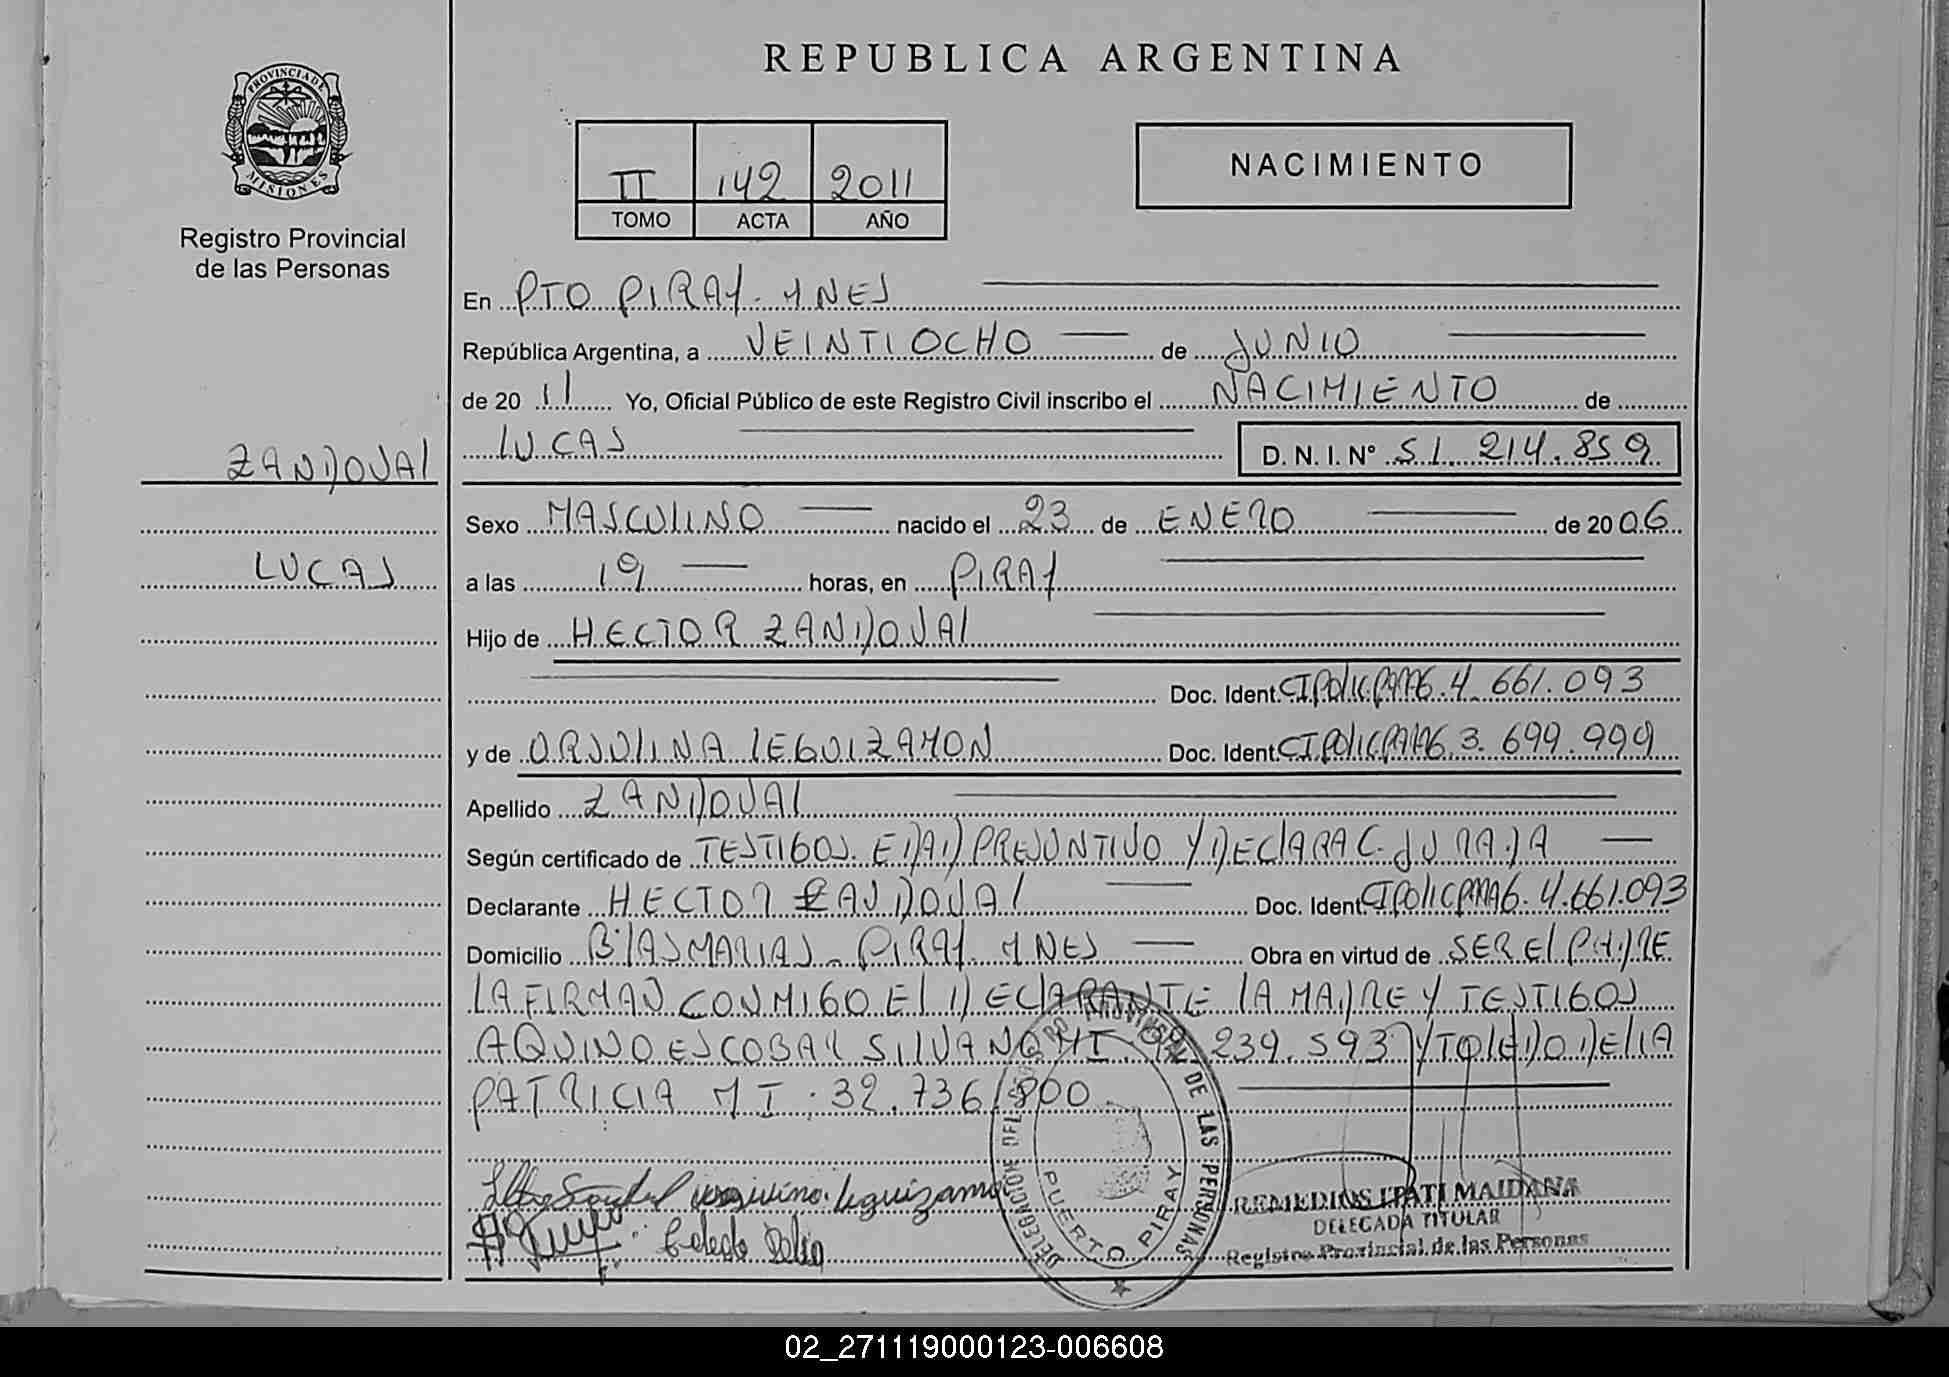 REPUBLICA ARGENTINA
PROVINCIA DE MISIONES
Registro Provincial
de las Personas
II 142 2011
TOMO ACTA AÑO
NACIMIENTO
En PTO PIRAY. MNES
República Argentina, a VEINTIOCHO de JUNIO
de 20 11 Yo, Oficial Público de este Registro Civil inscribo el NACIMIENTO de
LUCAS D. N. I. N° 51. 214.859
ZANDOVAL
LUCAS
Sexo MASCULINO nacido el 23 de ENERO de 20 06
a las 19 horas, en PIRAY
Hijo de HECTOR ZANDOVAL
Doc. Ident. CI POLIC PARAG. 4. 661.093
y de ORSOLINA LEGUIZAMON Doc. Ident. CI POLIC PARAG. 3. 699.999
Apellido ZANDOVAL
Según certificado de TESTIGOS. EDAD PRESUNTIVO Y DECLARAC. JURADA
Declarante HECTOR ZANDOVAL Doc. Ident. CI POLIC PARAG. 4.661.093
Domicilio B° LAS MARIAS - PIRAY MNES Obra en virtud de SER EL PADRE
LA FIRMAN CONMIGO EL DECLARANTE LA MADRE Y TESTIGOS
AQUINO ESCOBAR SILVANO MI. 239.593 Y TOLEDO DELIA
PATRICIA MI. 32.736/800
leguizamon
DELEGACION DEL REGISTRO PROVINCIAL DE LAS PERSONAS
PUERTO PIRAY
REMEDIOS ITATI MAIDANA
DELEGADA TITULAR
Registro Provincial de las Personas
02_271119000123-006608